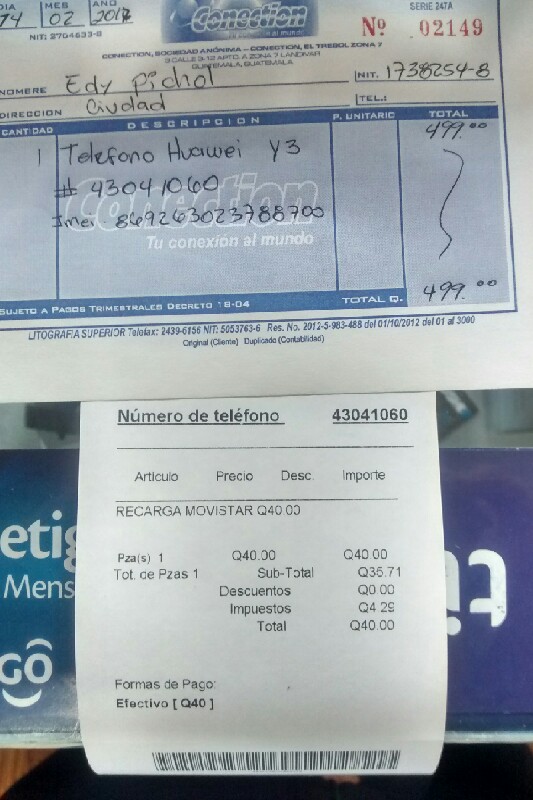 DIA MES AÑO
14 02 2017
Conection
SERIE 247A
Nº 02149
CONECTION, SOCIEDAD ANÓNIMA - CONECTION, EL TREBOL ZONA 7
GUATEMALA, GUATEMALA
NOMBRE Edy Pichol
NIT. 1738254-8
DIRECCION Ciudad
TEL.:
CANTIDAD DESCRIPCION P. UNITARIO TOTAL
1 Telefono Huawei Y3 499.00
# 43041060
Imei 869263023788700
Conection
Tu conexión al mundo
TOTAL Q. 499.00
SUJETO A PAGOS TRIMESTRALES DECRETO 18-04
LITOGRAFIA SUPERIOR Telefax: 2439-6156 NIT: 5053763-6 Res. No. 2012-5-983-488 del 01/10/2012 del 01 al 3000
Original (Cliente) Duplicado (Contabilidad)
Número de teléfono 43041060
Articulo Precio Desc. Importe
RECARGA MOVISTAR Q40.00
Pza(s) 1 Q40.00 Q40.00
Tot. de Pzas 1 Sub-Total Q35.71
Descuentos Q0.00
Impuestos Q4.29
Total Q40.00
Formas de Pago:
Efectivo [ Q40 ]
etig
Mens
GO